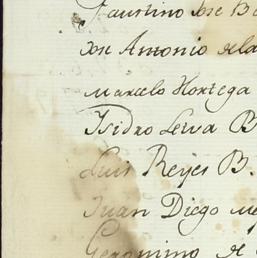 Faustino Jose B
Jose Antonio dela
Marcelo Hortega
Isidro Leiva B
Luis Reyes B.
Juan Diego
Geronimo de